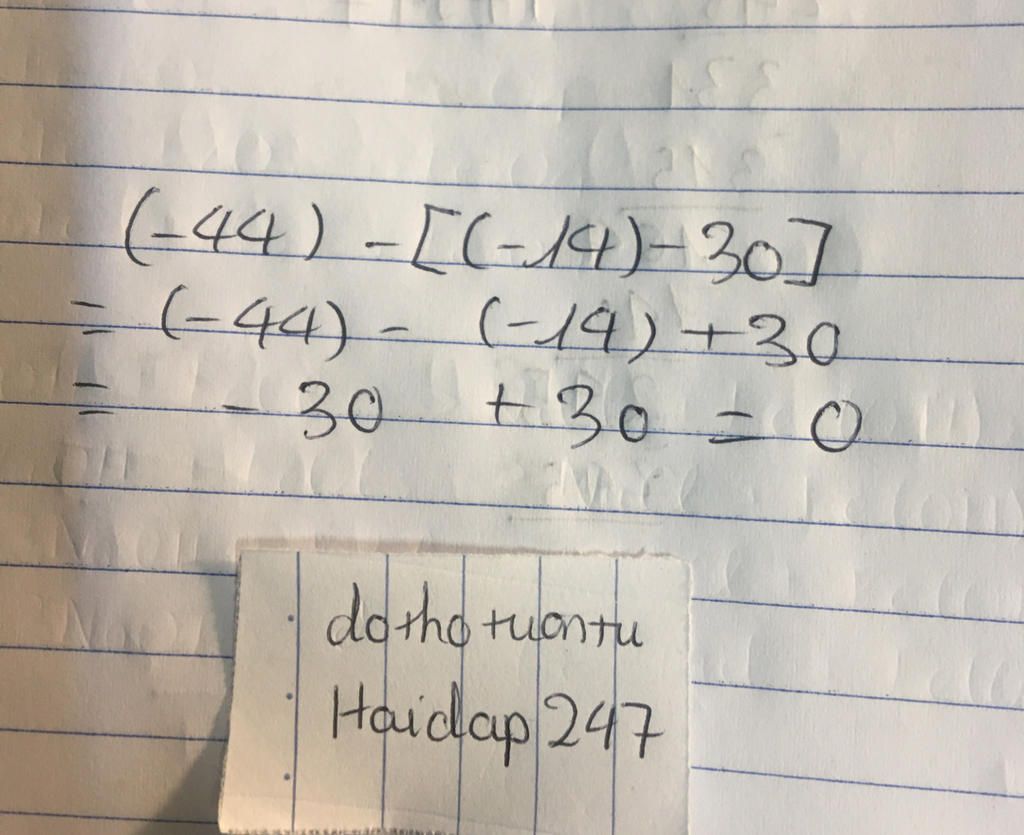 (-44) - [(-14) - 30]
= (-44) - (-14) + 30
= - 30 + 30 = 0
dothotuontu
Hoidap247